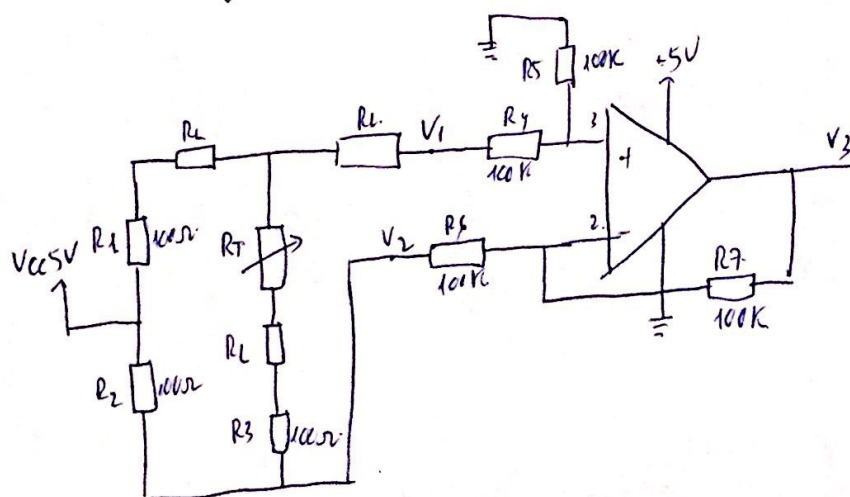 R5
100K
+5V
RL
RL
V1
R4
100K
3
+
V3
Vcc5V
R1
100Ω
RT
V2
R6
100K
2
-
R7
100K
R2
100Ω
RL
R3
100Ω